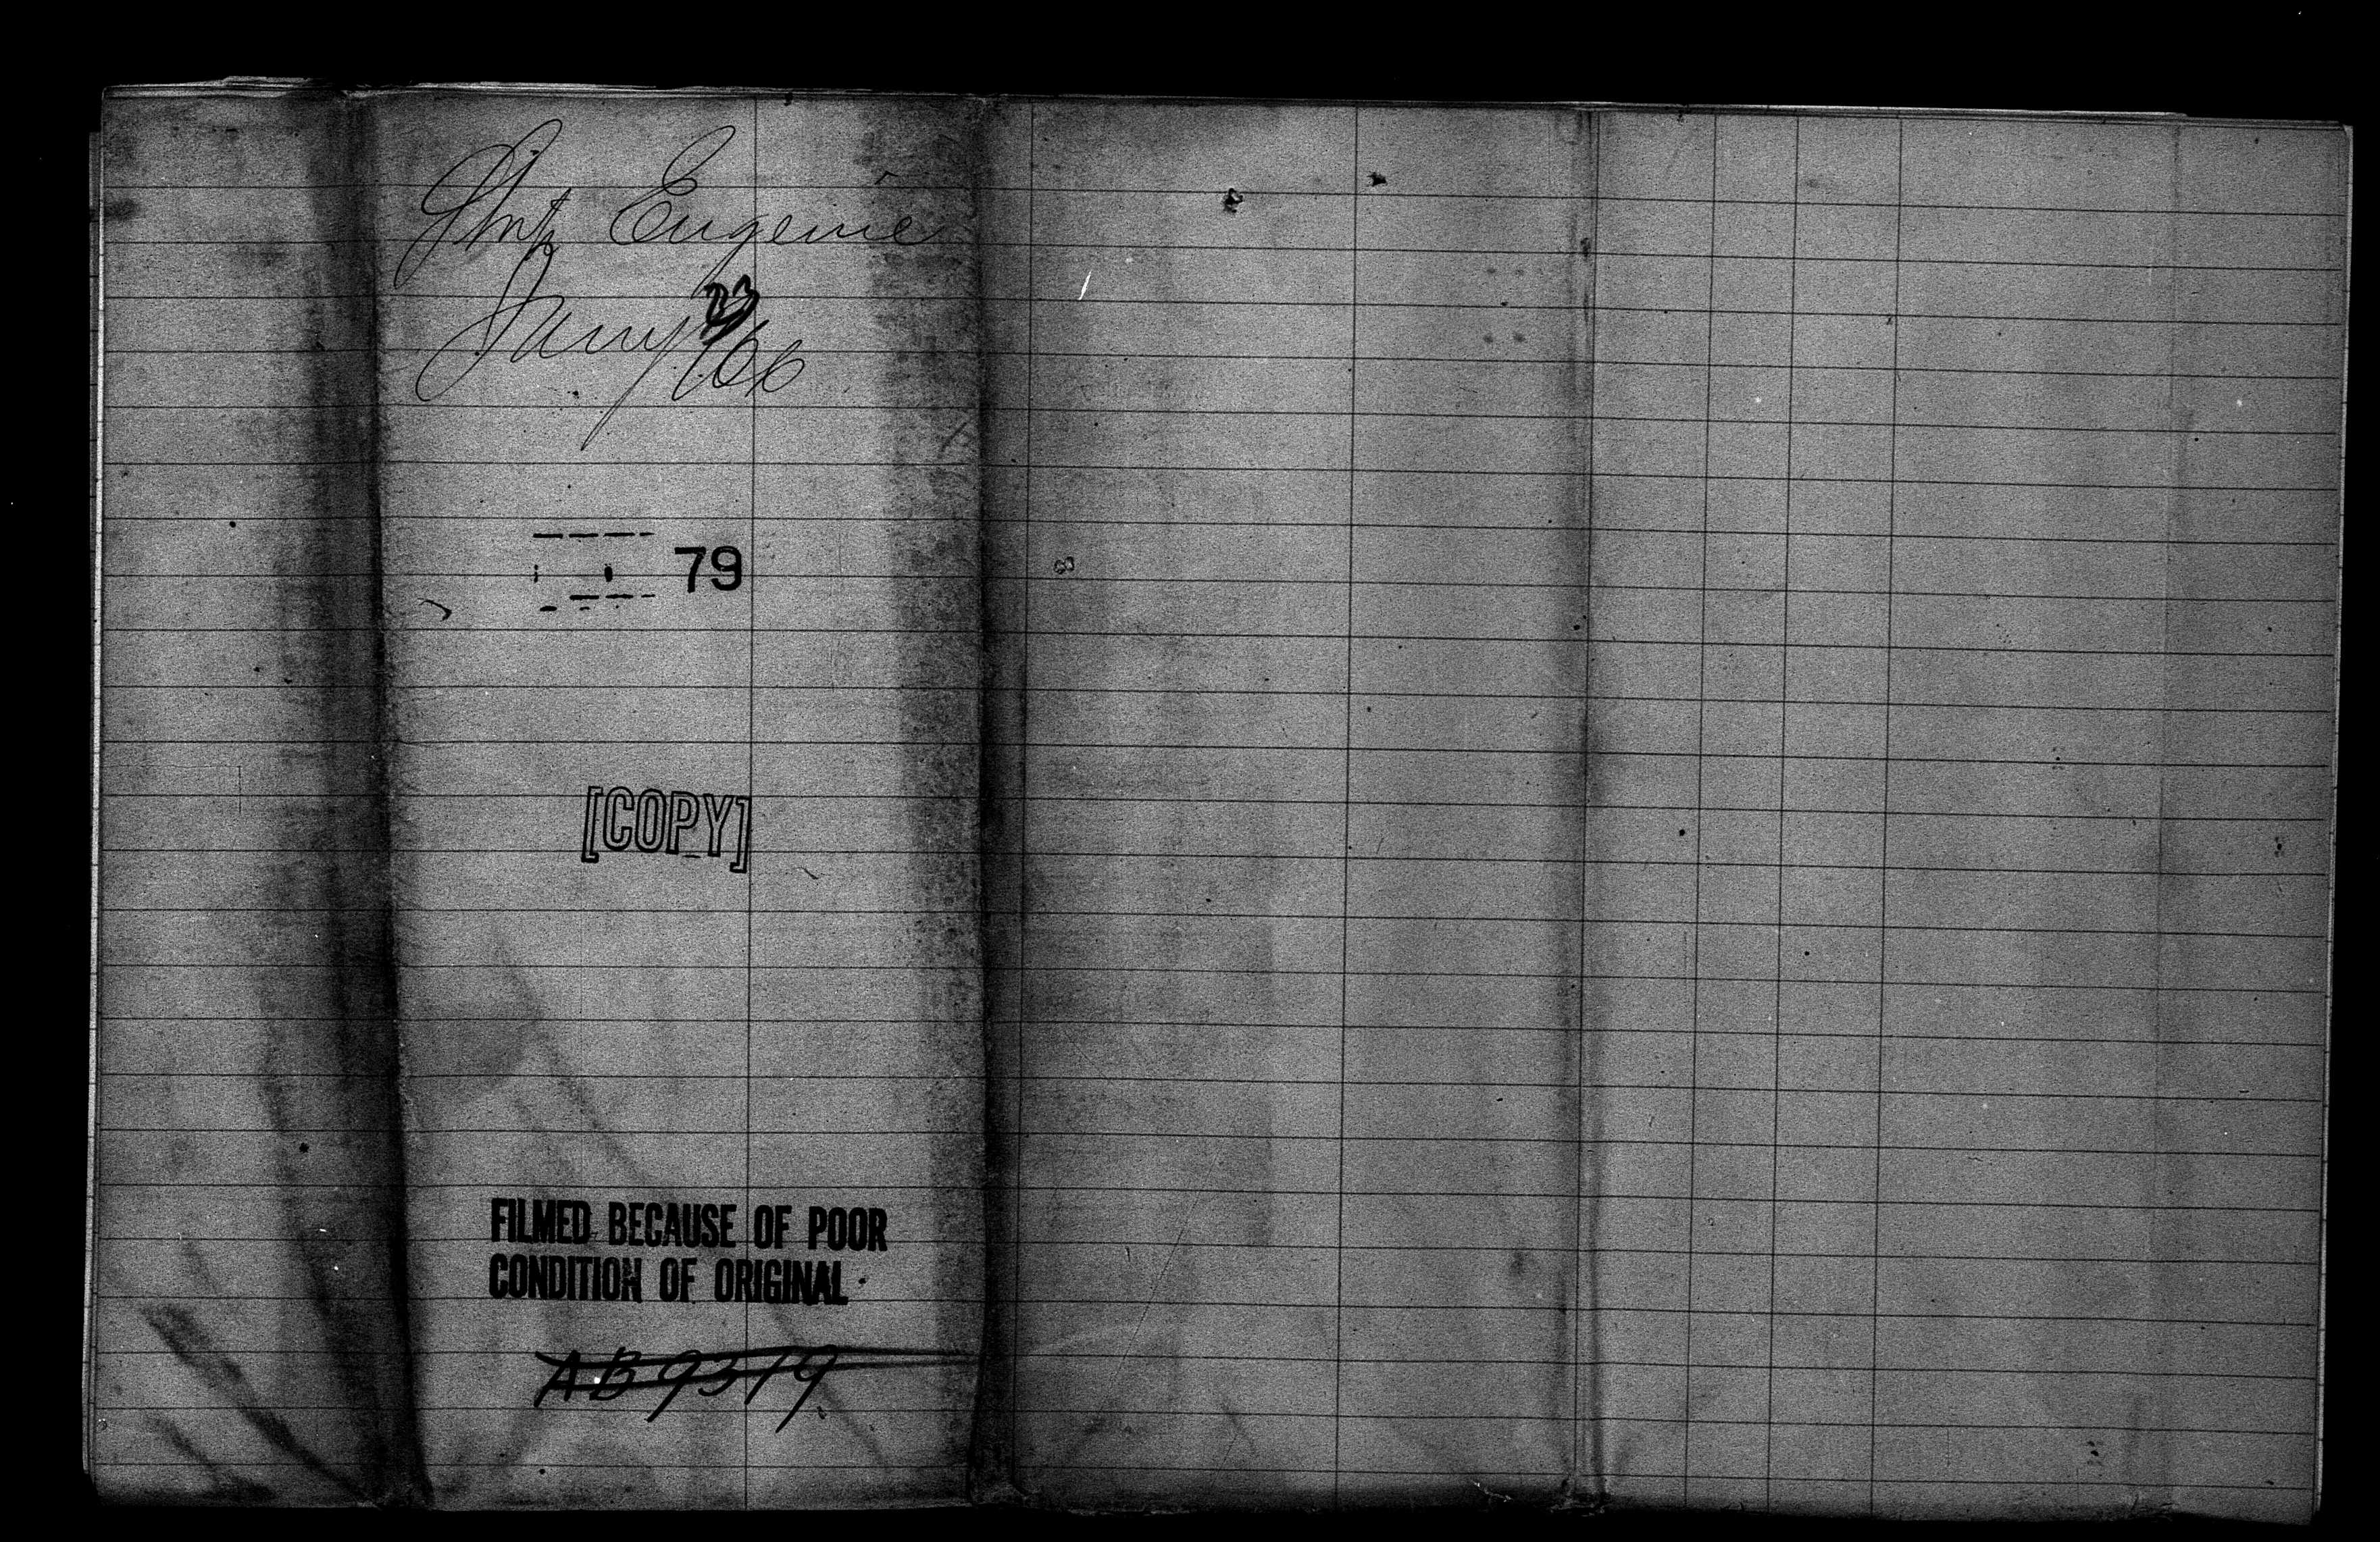 Ship Eugenie
Jany 23/66
79
[COPY]
FILMED BECAUSE OF POOR
CONDITION OF ORIGINAL
AB9379